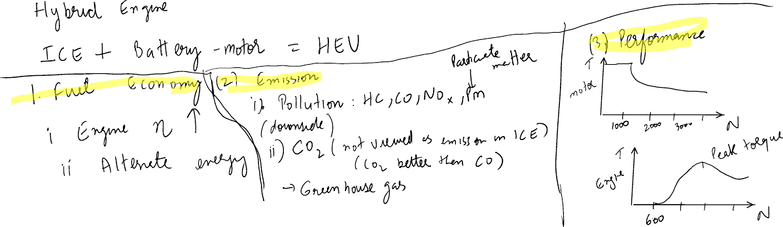 Hybrid Engine
ICE + Battery-motor = HEV
1. Fuel Economy ↑
i Engine η
ii Alternate energy
(2) Emission
Particulate matter
i) Pollution : HC, CO, NOx, Pm
(downside)
ii) CO2 (not viewed as emission in ICE)
(CO2 better then CO)
→ Greenhouse gas
(3) Performance
T
motor
1000 2000 3000
N
T
Engine
Peak torque
600
N